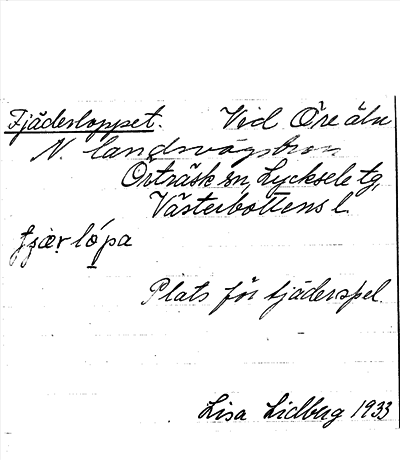 Fjäderloppet. Vid Öre älv
N. landsvägsbron
Örträsk sn, Lycksele tg,
Västerbottens l.
fjæ̣r lo᷄pa
Plats för fjäderspel
Lisa Lidberg 1933